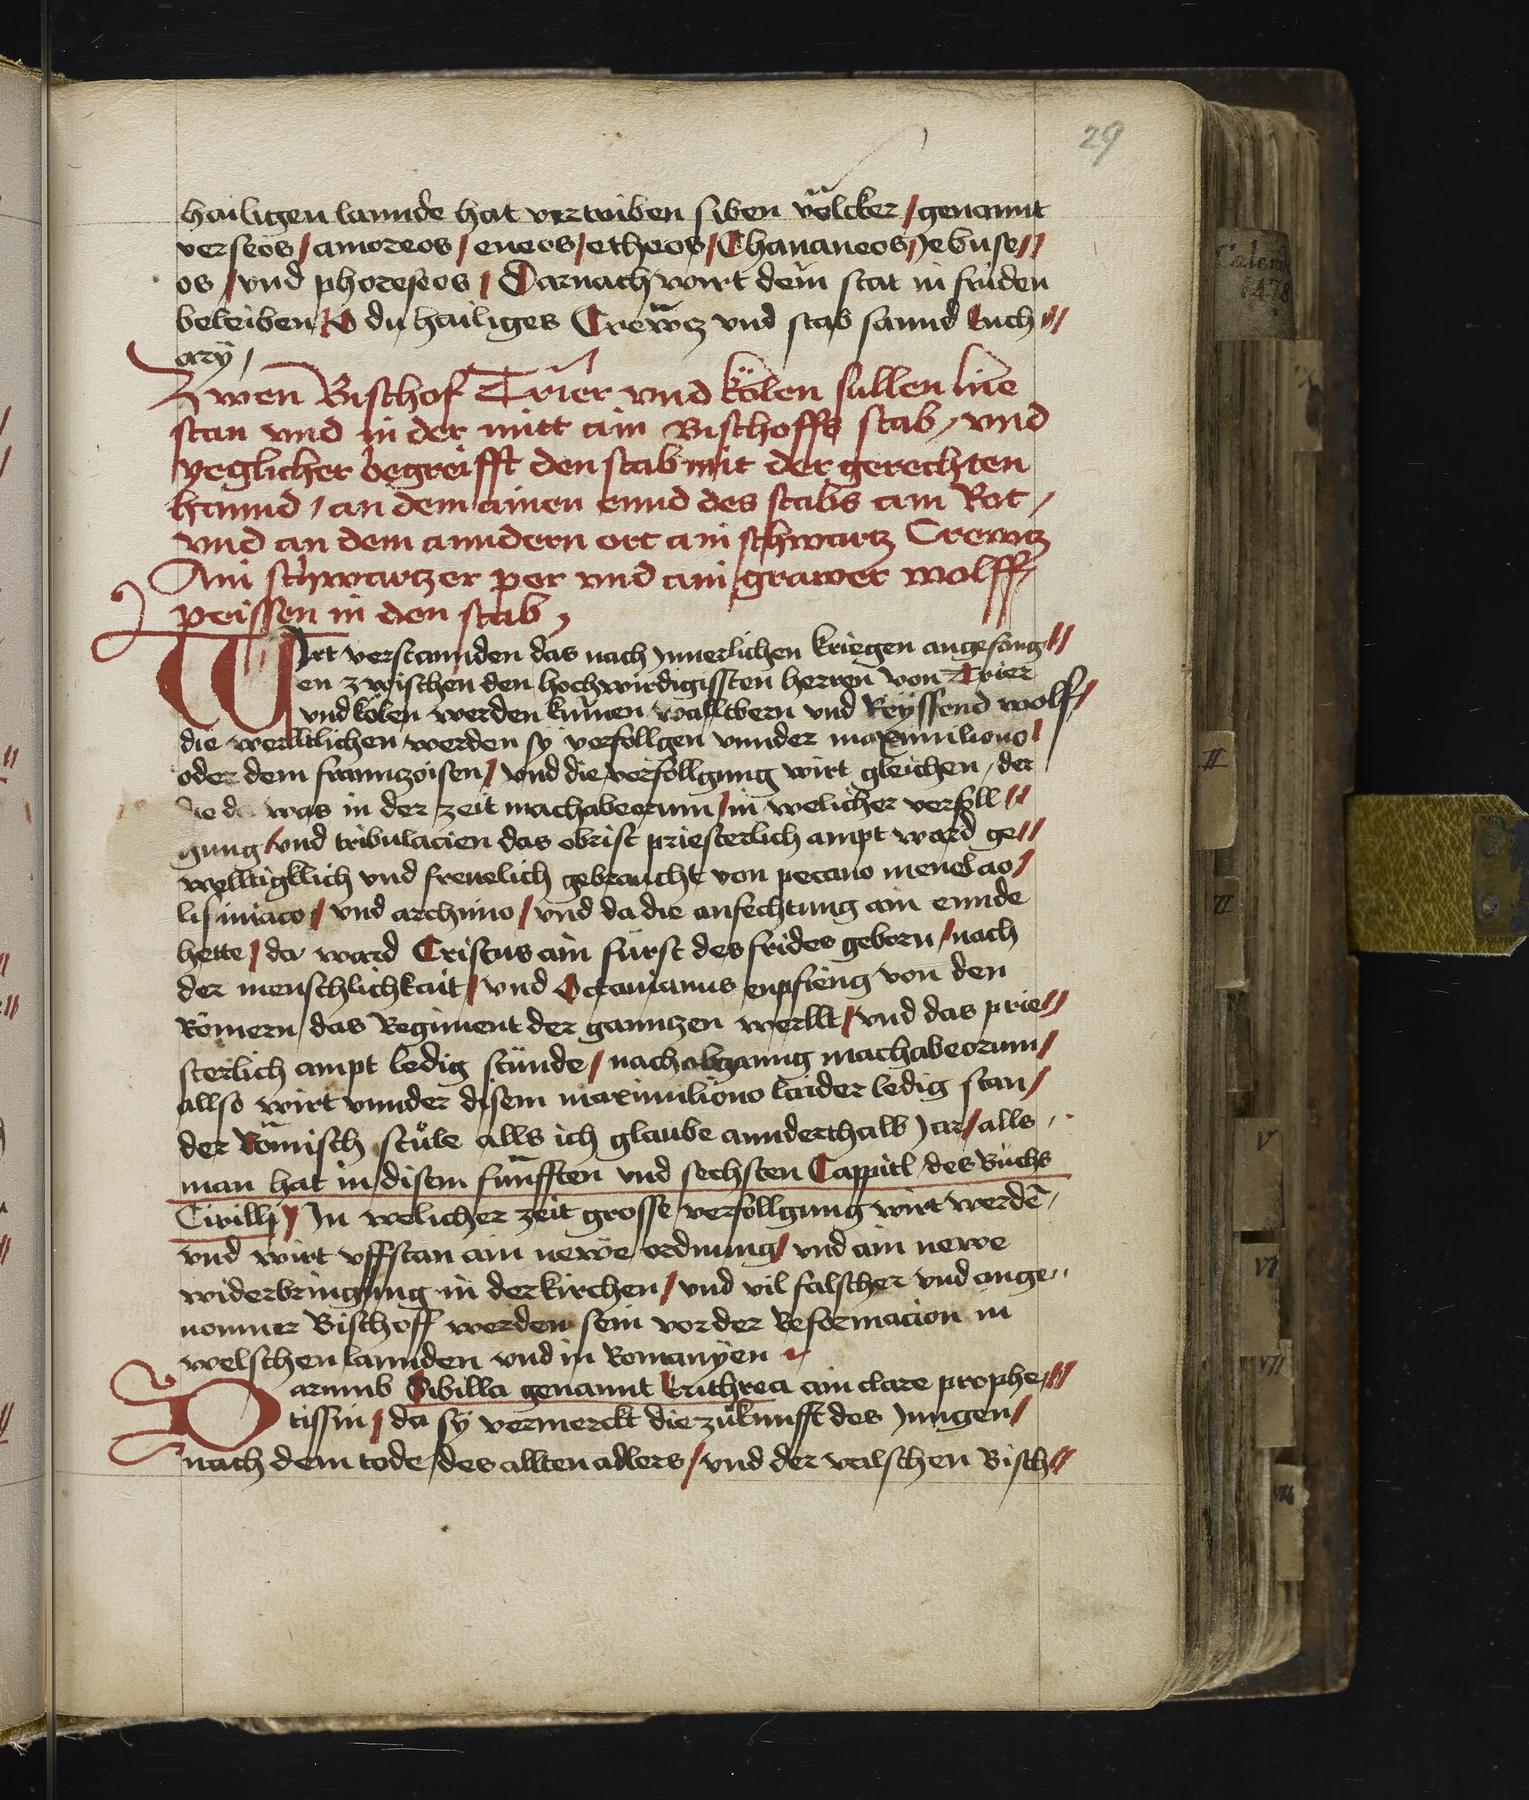 29
hailigen lannde hat vertriben siben völcker / genannt
verseos / amoreos / eneos / etheos / Chananeos / Jebuse //
os / vnd phereseos / Darnach wirt dein stat in friden
beleiben / O du hailiges Crewtz vnd stab sannd Euch //
ary /
Zwen Bischof Trier vnd Kölen sullen hie
stan vnd in der mitt ain Bischoffs stab / vnd
yeglicher begreifft den stab mit der gerechten
hannd / an dem ainen ennd des stabs ain Rot /
vnd an dem anndern ort ain schwartz Crewtz
Ain schwartzer per vnd ain grawer wolff /
peissen in den stab /
Wirt verstannden das nach Innerlichen kriegen angefang //
en zwischen den hochwirdigissten herren von Trier
vnd kölen werden kumen wallthern vnd Reyssend wolf /
die werlltlichen werden sy verfollgen vnnder maximiliano /
oder dem franntzoisen / vnd die verfollgung wirt gleichen / der
die da was in der zeit machabeorum / in welicher verfoll //
gung / vnd tribulacien das obrist priesterlich ampt ward ge //
welltigklich vnd freuelich gebraucht von pecano menelao /
lisimaco / vnd archimo / vnd da die anfechtung ain ennde
hette / da ward Cristus ain fürst des frides geborn / nach
der menschlichkait / vnd Octauianus enpfieng von den
Römern das Regiment der ganntzen werllt / vnd das prie //
sterlich ampt ledig stünde / nach abganng machabeorum /
allso wirt vnnder disem maximiliono laider ledig stan /
der Römisch stůle alls ich glaube annderthalb Jar / alls
man hat in disem fünfften vnd sechsten Cappitl des Buchs
Cirilli / In welicher zeit grosse verfollgung wirt werdē /
vnd wirt vffstan ain newe ordnung / vnd ain newe
widerbringung in der kirchen / vnd vil falscher vnd ange //
nomner Bischoff werden sein vor der Reformacion in
welschen lannden vnd in Romanyen
Darumb Sibilla genannt Erithrea ain clare prophe //
tissin / da sy vermerckt die zůkunfft des Jungen /
nach dem tode des allten adlers / vnd der valschen Bisch //
II
VI
V
VI
VII